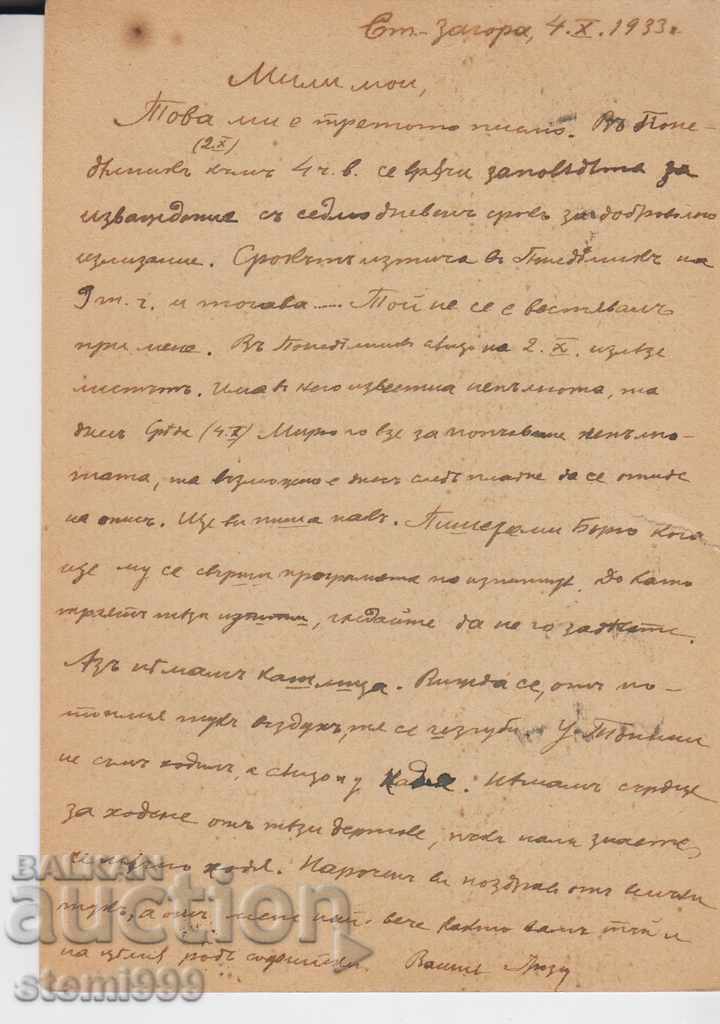 Ст-Загора, 4.X.1933г.
Мили мои,
Това ми е третото писмо. Въ Поне-
(2.X)
дѣлникъ къмъ 4 ч. в. се връчи заповѣдьта за
изваждение съ седмодневенъ срокъ за доброволно
излизание. Срокътъ изтича въ Понедѣлникъ на
9 т. г. и тогава...... Той не се е вестявалъ
при мене. Въ Понедѣлникъ на 2.X. излѣзе
листътъ. Има въ него известна непълнота, та
днесъ Срѣда (4.X) Мирчо го взе за попълване непълно-
тата, та възможно е днесъ следъ пладне да се отиде
на описъ. Ще ви пиша пакъ. Пишете ми кога
ще му се свърши програмата по изпитите. До като
траятъ тѣзи изпити, гледайте да не го
Азъ нѣмамъ кашлица. Вижда се, отъ по-
топлия тукъ въздухъ, че се изгуби. У
не съмъ ходилъ, а и у Надя. Нѣмамъ сърдце
за ходене отъ тѣзи дертове, пъкъ нали знаете
ходя. Нарочен ви поздрав отъ всички
тукъ, а отъ мене най-вече както вамъ тъй и
на цѣлия родъ софийски. Вашия
BALKAN
auction
stemi999